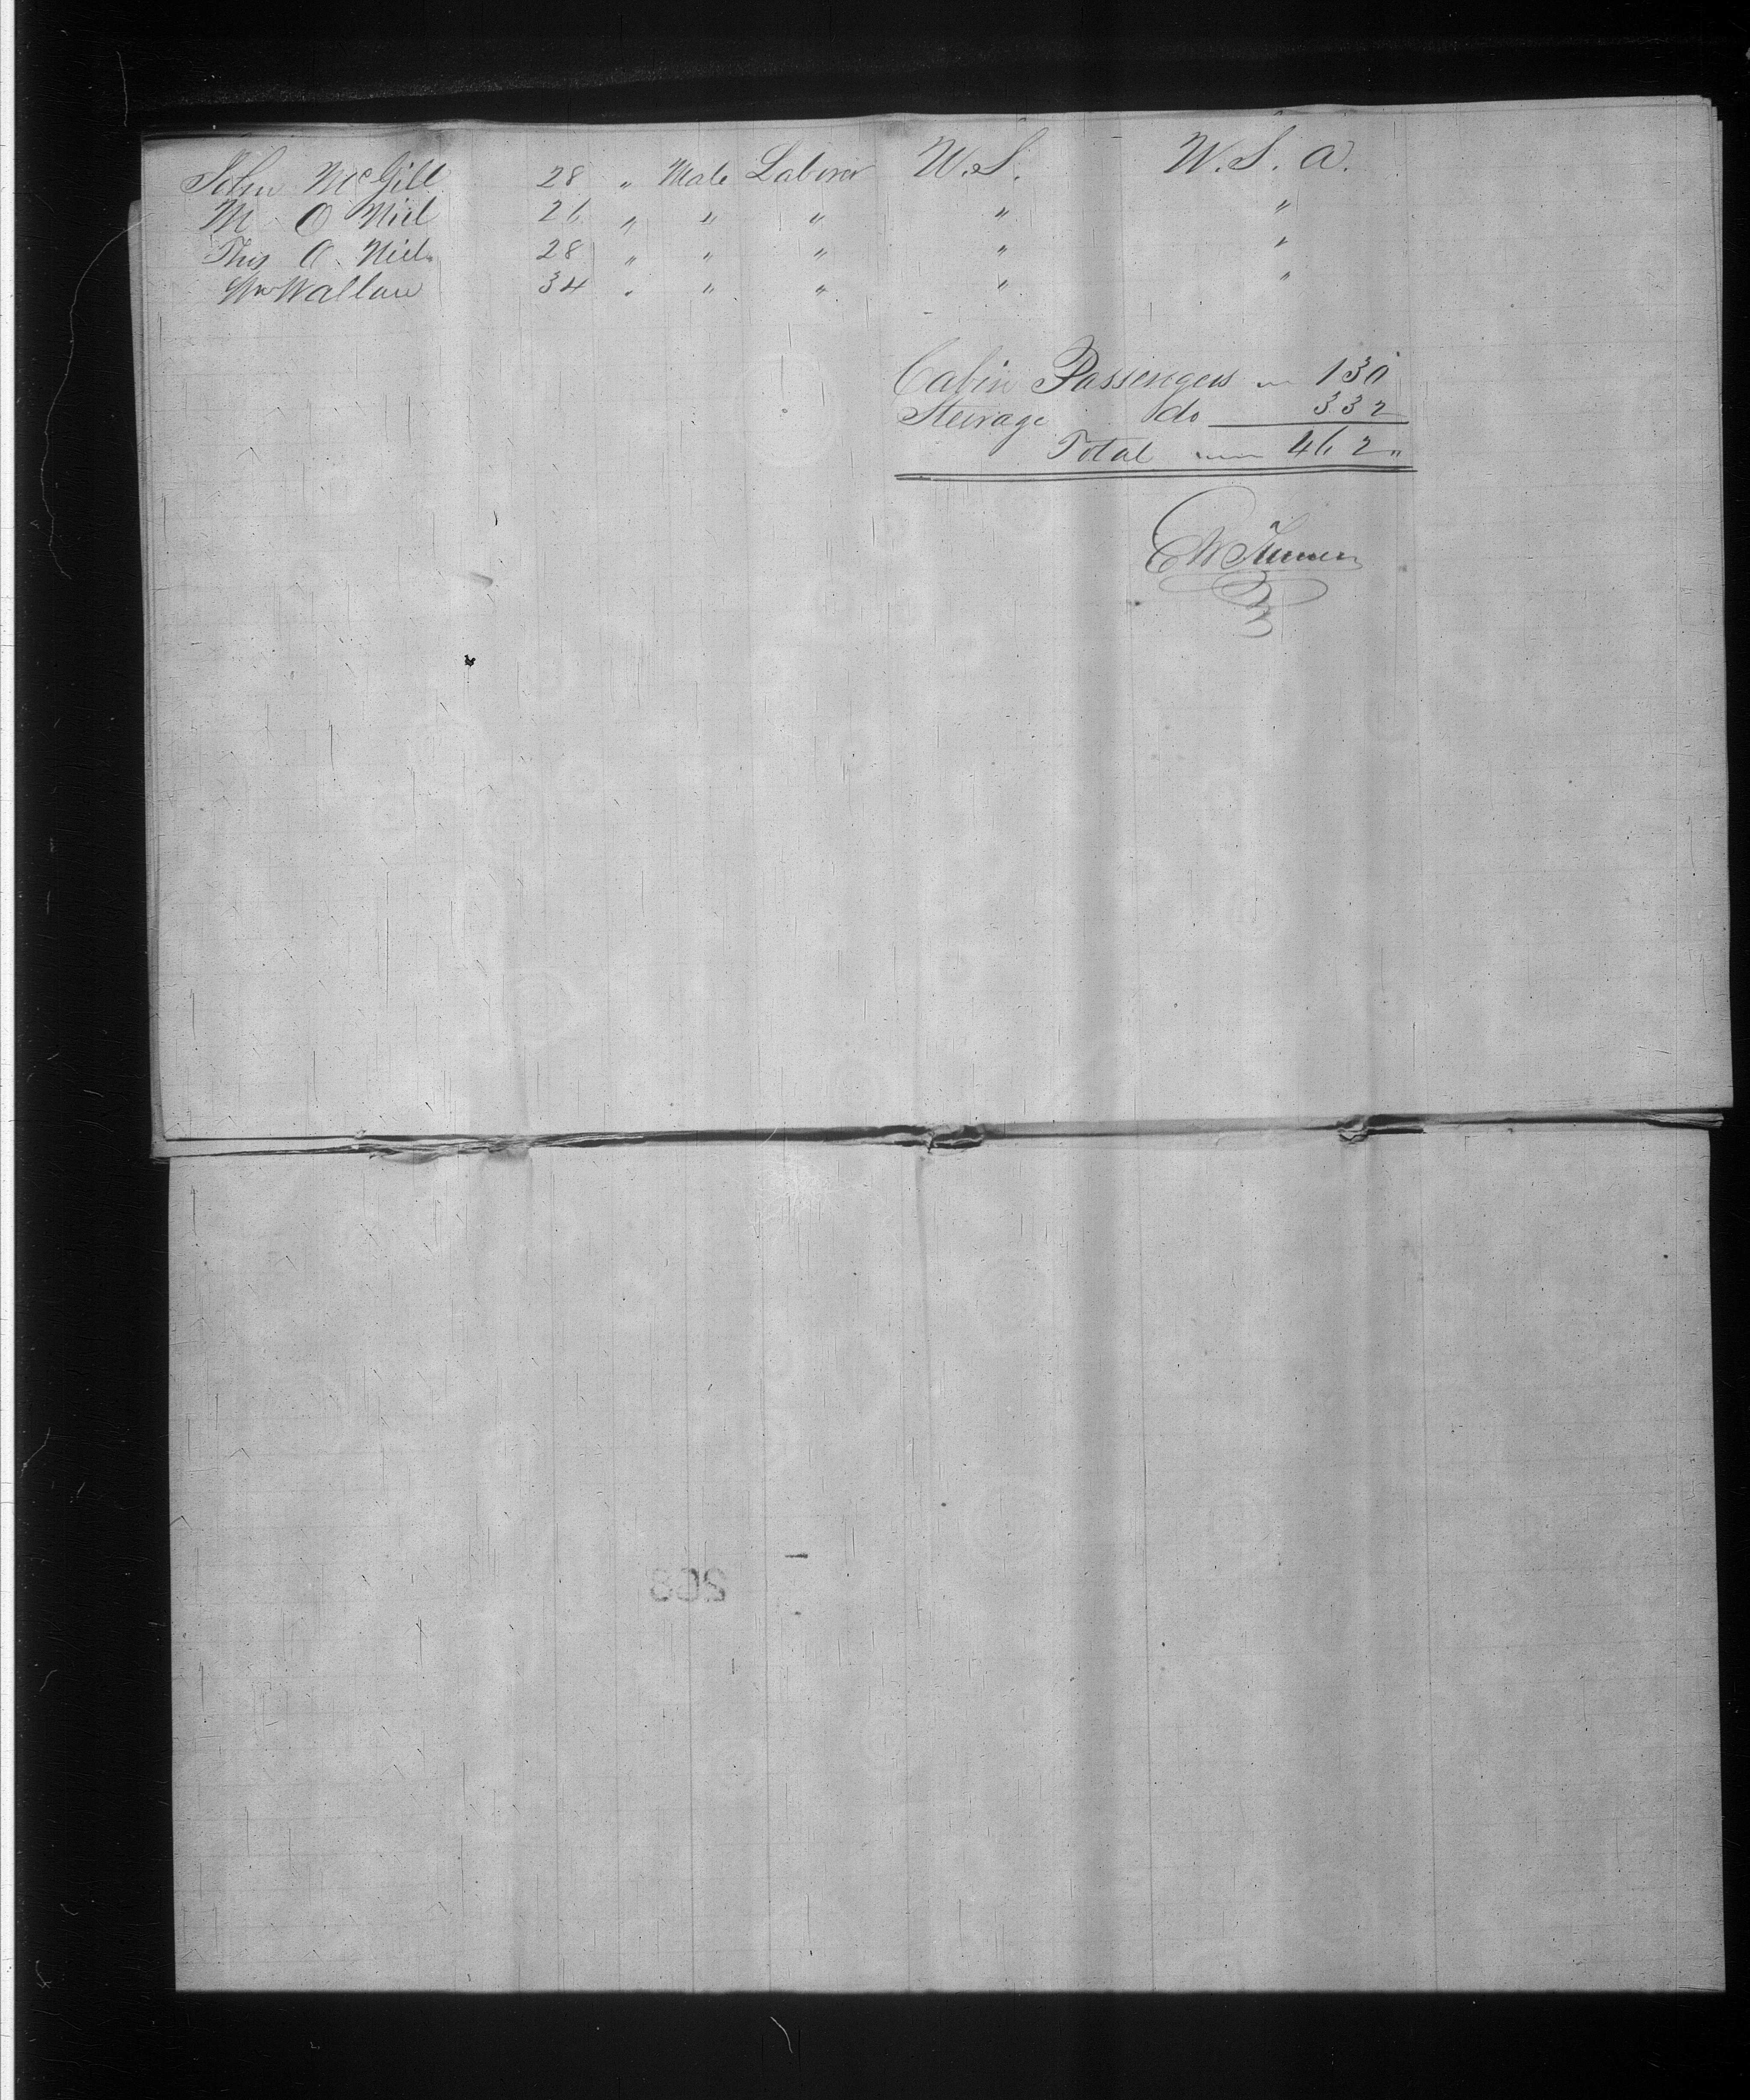 John McGill 28 " Male Laborer U.S. U.S.A.
M O Niel 26 " " " " "
Thos O. Niel 28 " " " " "
Wm Wallace 34 " " " " "
Cabin Passengers 130
Steerage do 332
Total 462
263